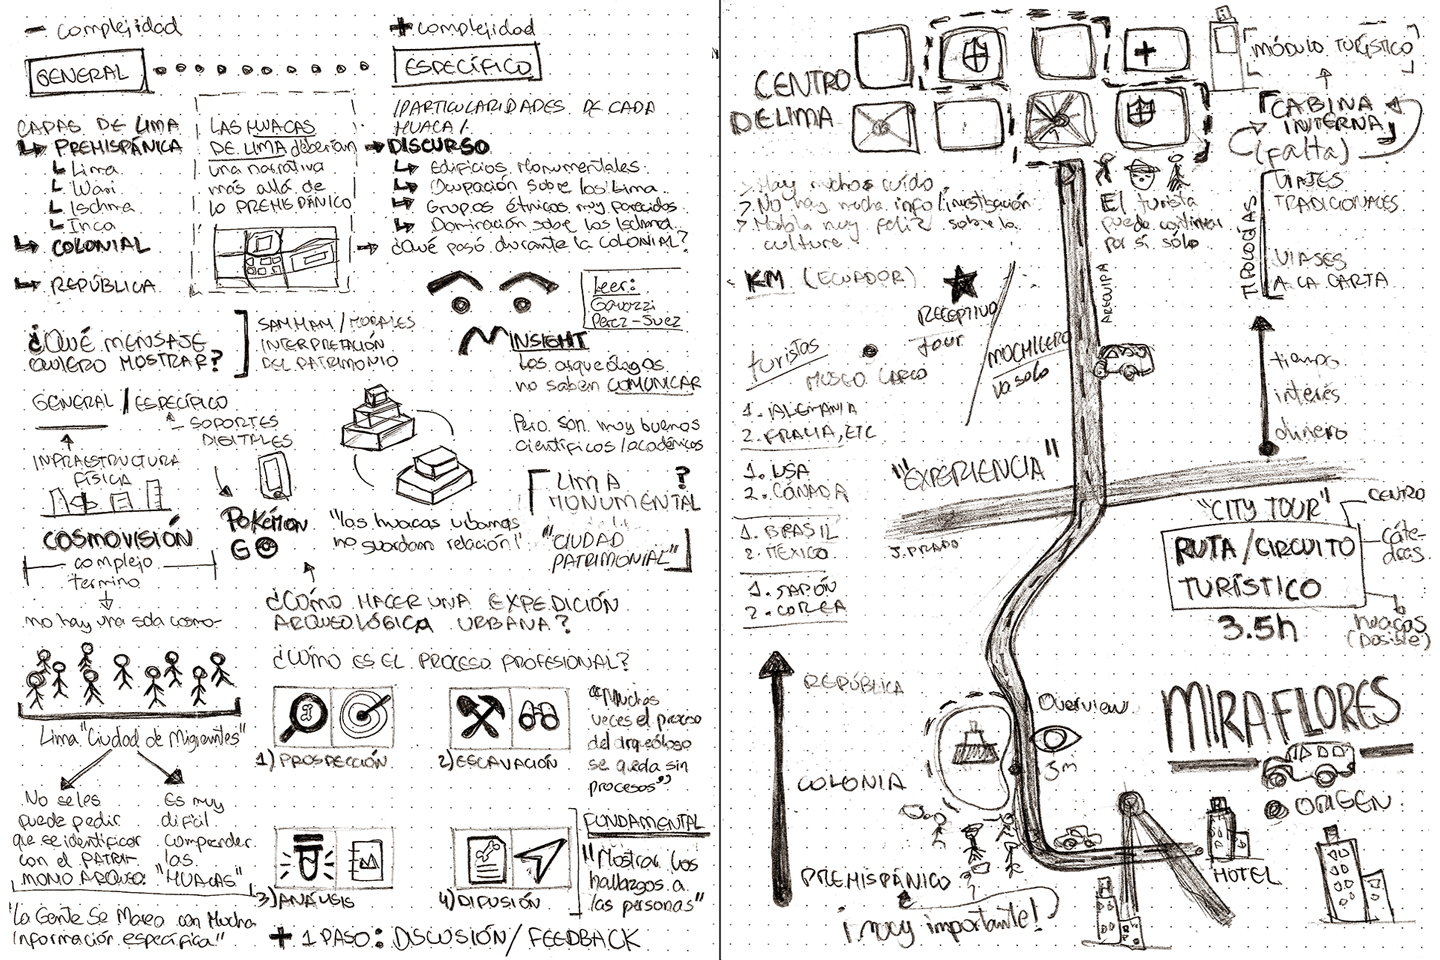 - complejidad
+ complejidad
GENERAL
ESPECÍFICO
CAPAS DE LIMA
PREHISPÁNICA
Lima
Wari
Ischma
Inca
COLONIAL
REPÚBLICA
LAS HUACAS
DE LIMA deberían
una narrativa
más allá de
lo PREHISPÁNICO
/PARTICULARIDADES DE CADA
HUACA/
DISCURSO
Edificios Monumentales.
Ocupación sobre los Lima.
Grupos étnicos muy parecidos
Dominación sobre los Ischma.
¿Qué pasó durante la COLONIAL?
Leer:
INSIGHT
Los arqueólogos
no saben COMUNICAR
Pero son muy buenos
científicos/académicos
¿QUÉ MENSAJE
QUIERO MOSTRAR?
SAM HAM/MORALES
INTERPRETACIÓN
DEL PATRIMONIO
GENERAL/ESPECÍFICO
SOPORTES
DIGITALES
INFRAESTRUCTURA
FÍSICA
POKÉMON
GO
"las huacas urbanas
no guardan relación!"
LIMA
MONUMENTAL
?
"CIUDAD
PATRIMONIAL"
COSMOVISIÓN
complejo
termino
no hay una sola cosmo-
¿CÓMO HACER UNA EXPEDICIÓN
ARQUEOLÓGICA URBANA?
¿CÓMO ES EL PROCESO PROFESIONAL?
Lima "Ciudad de Migrantes"
No se les
puede pedir
que se identificar
con el PATRI-
MONIO ARQUEO.
Es muy
difícil
comprender
las
"HUACAS"
"La Gente Se Marea con Mucha
Información específica"
1) PROSPECCIÓN
2) EXCAVACIÓN
"Muchas
veces el proceso
del arqueólogo
se queda sin
procesos"
3) ANÁLISIS
4) DIFUSIÓN
FUNDAMENTAL
"Mostrar los
hallazgos a
las personas"
+ 1 PASO: DISCUSIÓN/FEEDBACK
CENTRO
DE LIMA
MÓDULO TURÍSTICO
CABINA
INTERNA
(falta)
> Hay mucho ruido
> No hay mucha info/investigación
> Habla muy feliz sobre la
cultura
El turista
puede continuar
por sí solo
TIPOLOGÍAS
VIAJES
TRADICIONALES
VIAJES
A LA CARTA
KM (ECUADOR)
RECEPTIVO
tour
MOCHILERO
va solo
turistas
MUSEO LARCO
AREQUIPA
1. ALEMANIA
2. FRANCIA, ETC
1. USA
2. CANADA
1. BRASIL
2. MEXICO
1. JAPÓN
2. COREA
"EXPERIENCIA"
J. PRADO
tiempo
interés
dinero
"CITY TOUR"
CENTRO
RUTA/CIRCUITO
TURÍSTICO
3.5h
huacas
(posible)
REPÚBLICA
COLONIA
PREHISPÁNICO
¡muy importante!
Overview
5m
MIRAFLORES
ORIGEN
HOTEL